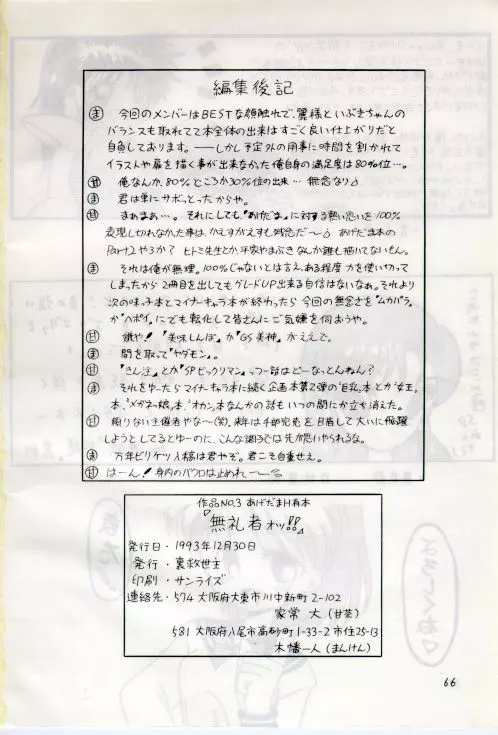 編集後記
ま 今回のメンバーはBESTな顔触れで、麗様といぶきちゃんの
バランスも取れてて本全体の出来はすごく良い仕上がりだと
自負しております。――しかし予定外の用事に時間を割かれて
イラストや扉を描く事が出来なかった俺自身の満足度は80%位…。
甘 俺なんか、80%どころか30%位の出来… 無念なり
ま 君は単にサボっとったからや。
甘 まぁまぁ…。それにしても『あげだま』に対する熱い思いを100%
表現し切れなかった事は、かえすがえすも残念だ〜 あげだま本の
Part2やろか? ヒトミ先生とか、平家やまぶきなんか誰も描いてないもん。
ま それは俺が無理。100%じゃないとは言え、ある程度力を使い切って
しまったから2冊目を出してもグレードUP出来る自信はないなぁ。それより
次の味っ子本とマイナーキャラ本が終わったら今回の無念さを『ムカパラ』
か『ハポイ』にでも転化して皆さんにご気嫌を伺おうや。
甘 嫌や!『美味しんぼ』か『GS美神』がええで。
ま 間を取って『ヤダモン』。
甘 『きん注』とか『SPビックリマン』っつー話はどーなっとんねん?
ま それをゆーたらマイナーキャラ本に続く企画本第2弾の『巨乳』本とか『女王』
本、『メガネっ娘』本、『オカン』本なんかの話もいつの間にか立ち消えた。
甘 頼りない主催者やな〜(笑)、来年は千部完売を目指して大いに飛躍
しようとしてるとゆーのに、こんな調子では先が思いやられるな。
ま 万年ビリケツ入稿は君やぞ。君こそ自重せえ。
甘 はーん!身内のバクロは止めれ〜
作品NO.3 あげだまH有本
『無礼者オッ!!』
発行日・1993年12月30日
発行・裏救世主
印刷・サンライズ
連絡先・574 大阪府大東市川中新町2-102
家常 大(甘茶)
581 大阪府八尾市高砂町1-33-2市住25-13
木幡一人(まんけん)
66